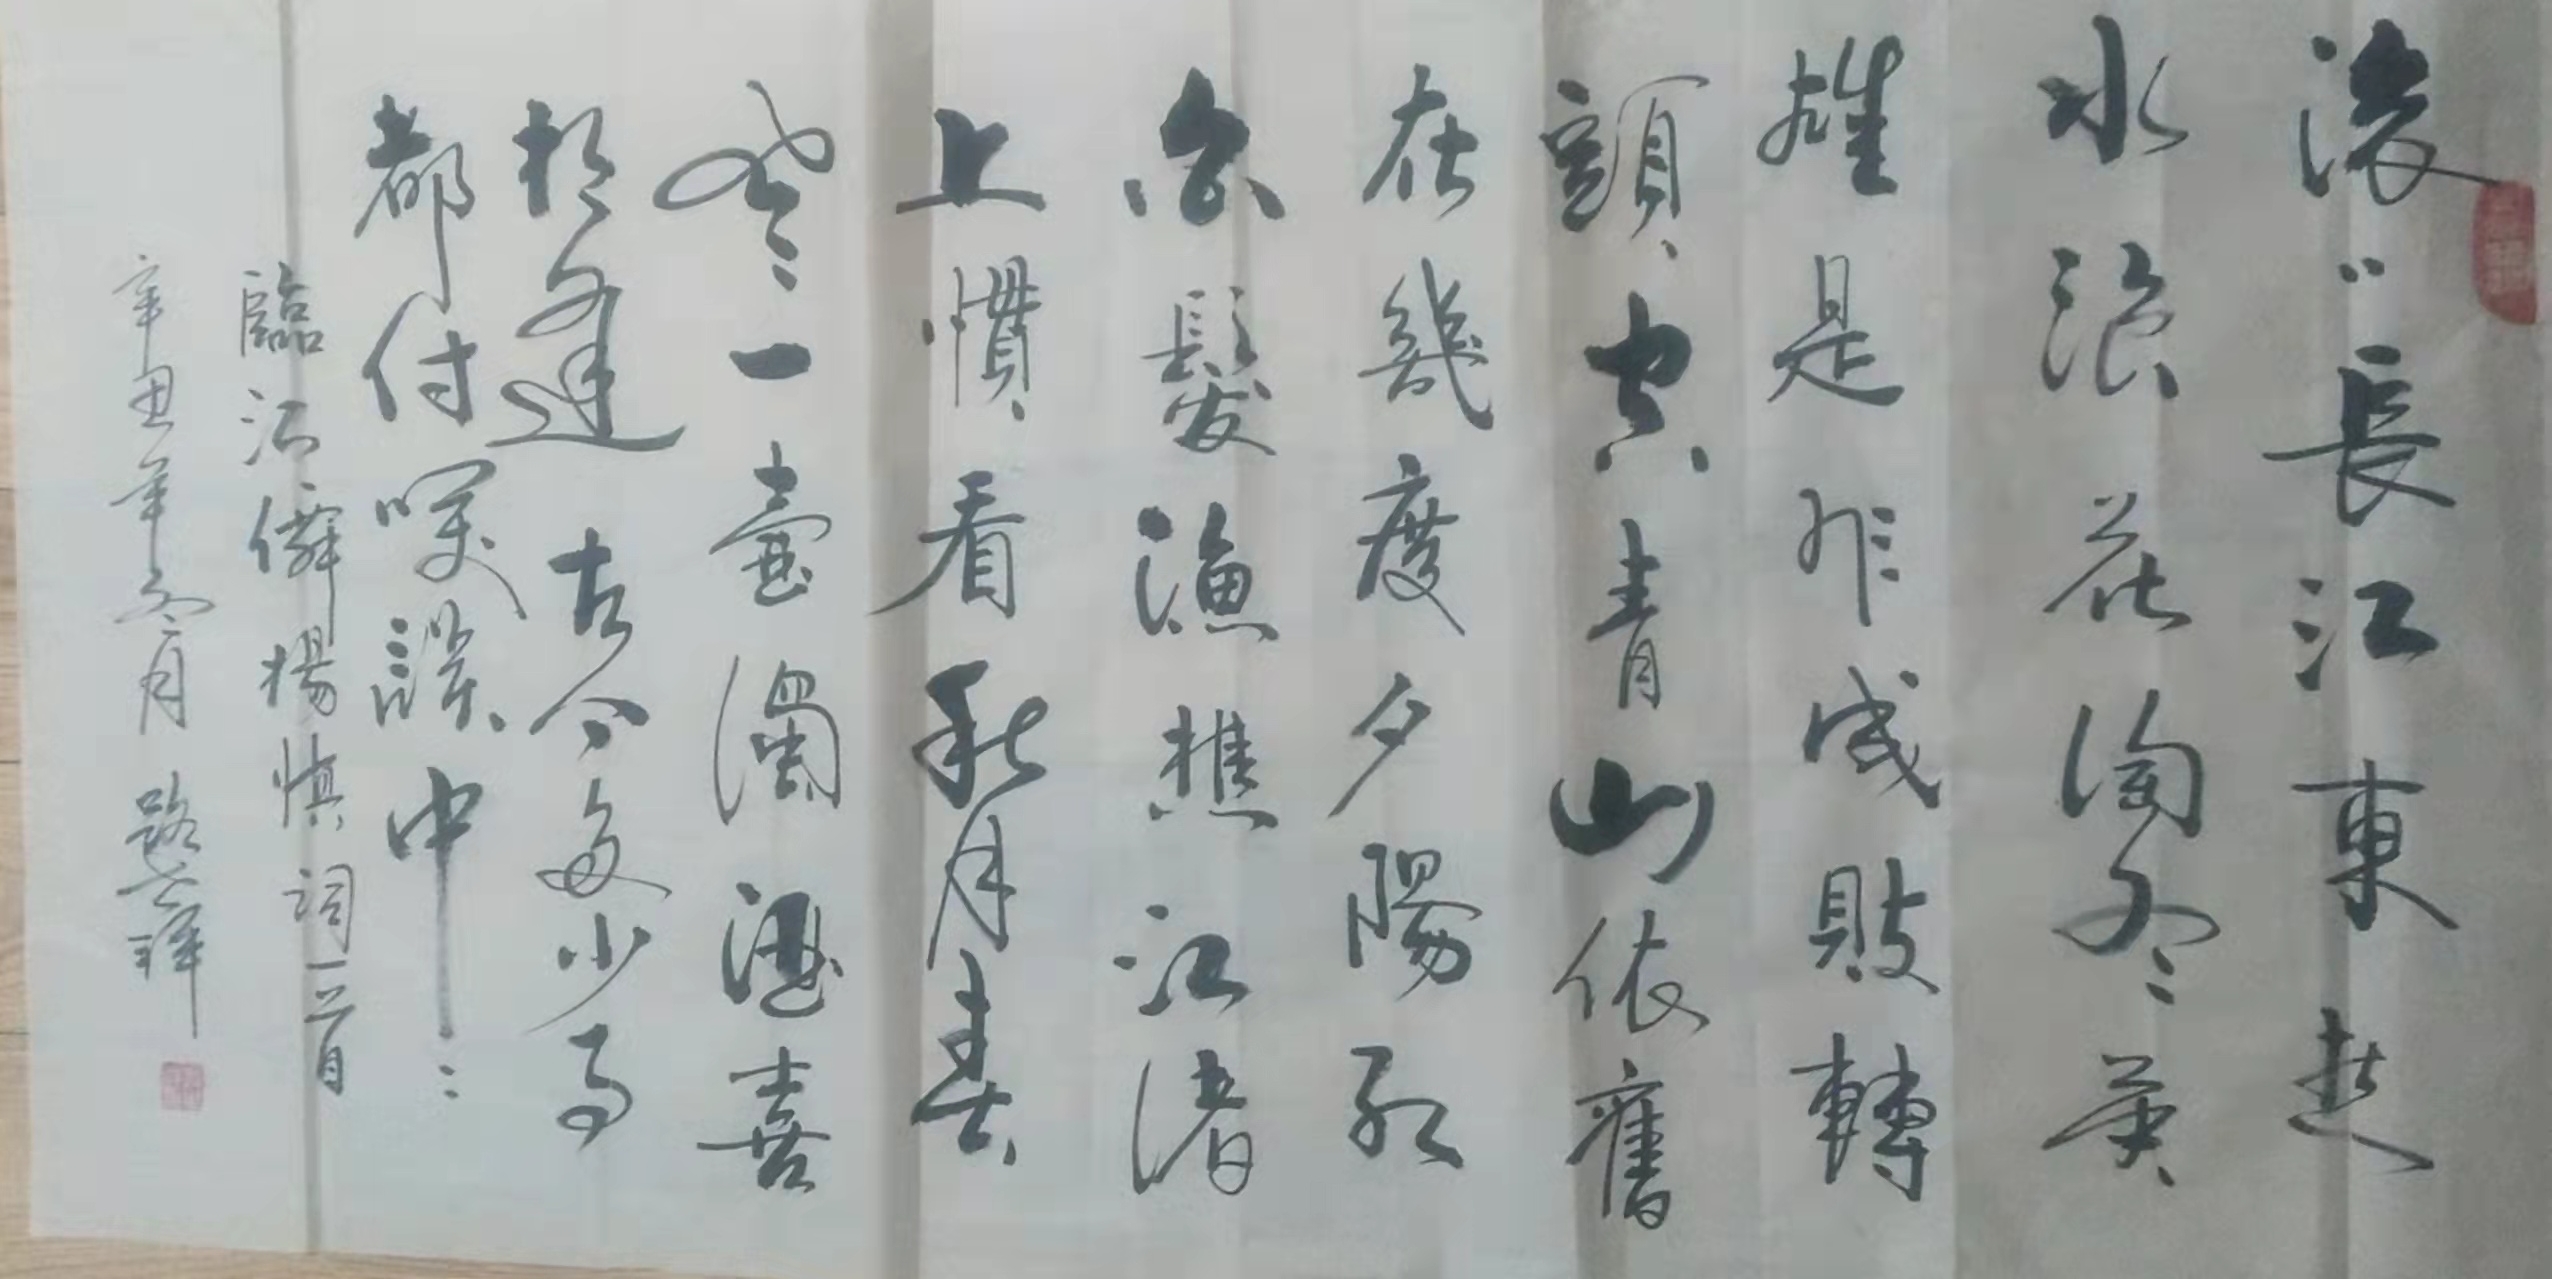 滚〃長江東逝
水浪花淘尽英
雄是非成敗轉
頭空青山依舊
在幾度夕陽紅
白髮漁樵江渚
上慣看秋月春
風一壺濁酒喜
相逢古今多少事
都付笑談中
臨江僊楊慎詞一首
辛丑年冬月 路